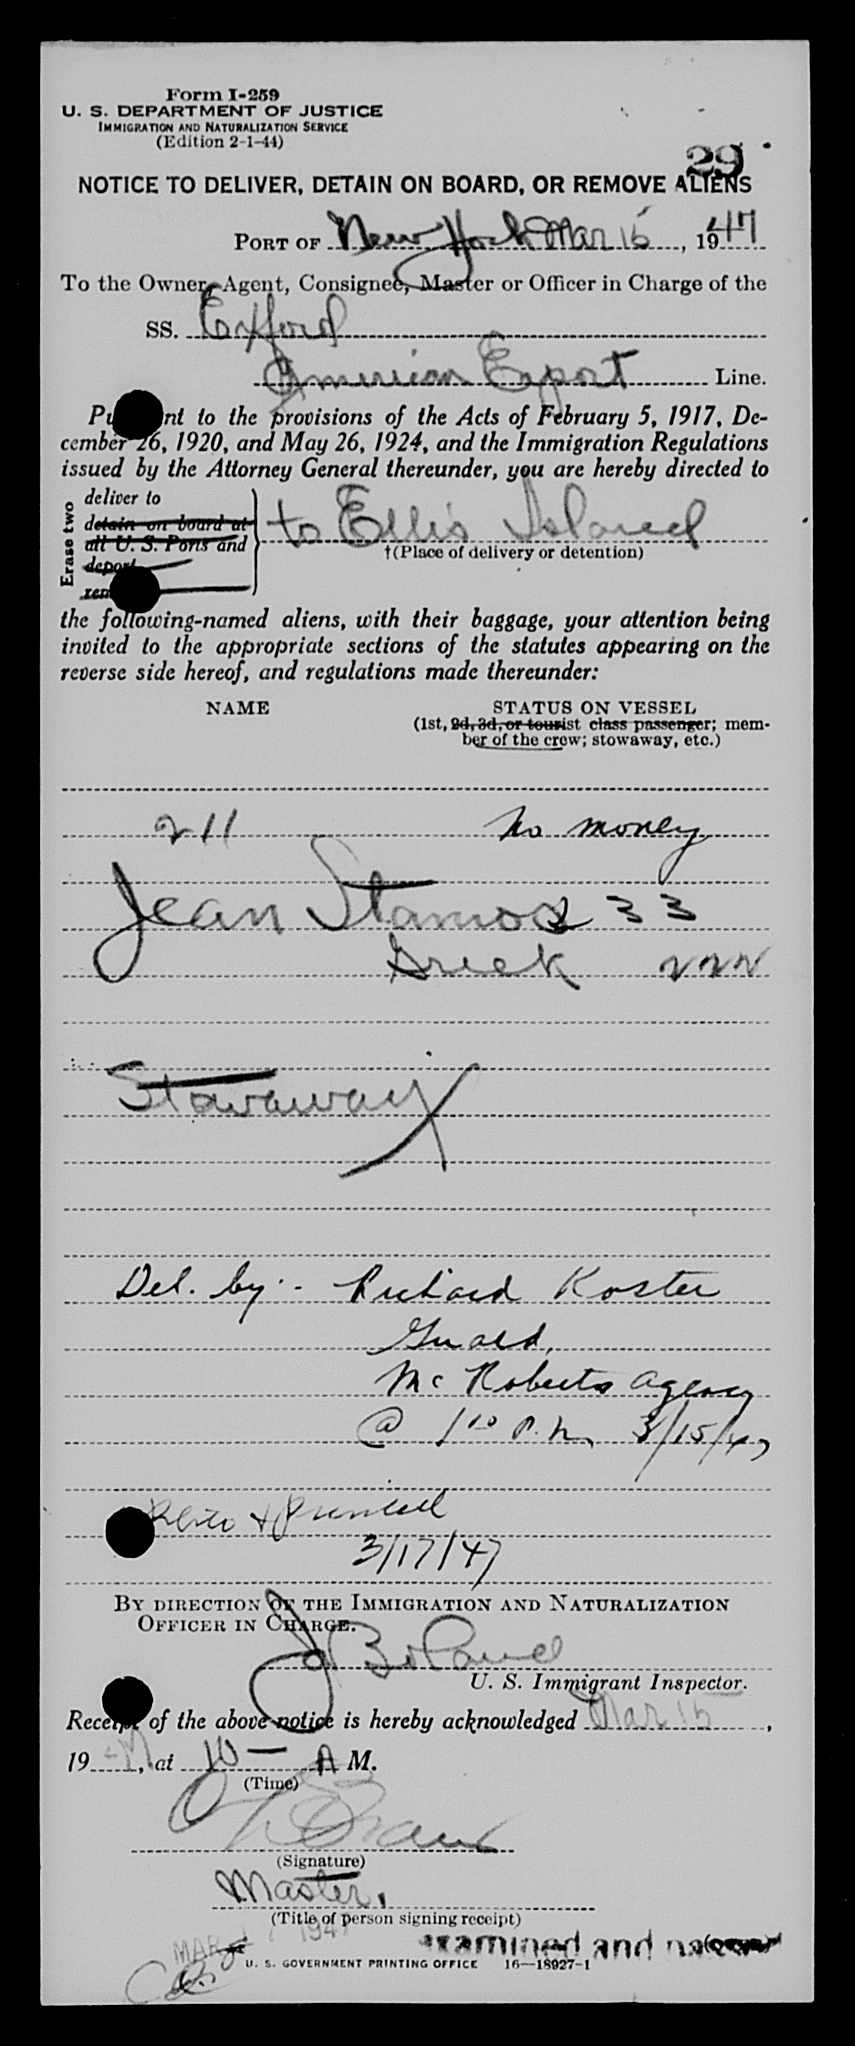 Form I-259
U. S. DEPARTMENT OF JUSTICE
IMMIGRATION AND NATURALIZATION SERVICE
(Edition 2-1-44)
29
NOTICE TO DELIVER, DETAIN ON BOARD, OR REMOVE ALIENS
PORT OF New York Mar 15, 1947
To the Owner, Agent, Consignee, Master or Officer in Charge of the
SS. Exford
American Export Line.
nt to the provisions of the Acts of February 5, 1917, De-
cember 26, 1920, and May 26, 1924, and the Immigration Regulations
issued by the Attorney General thereunder, you are hereby directed to
Erase two
deliver to
detain on board at
all U. S. Ports and
deport
to Ellis Island
†(Place of delivery or detention)
the following-named aliens, with their baggage, your attention being
invited to the appropriate sections of the statutes appearing on the
reverse side hereof, and regulations made thereunder:
NAME STATUS ON VESSEL
(1st, 2d, 3d, or tourist class passenger; mem-
ber of the crew; stowaway, etc.)
211 no money
Jean Stamos 33
Greek
Stowaway
Del. by:- Richard Koster
Guard,
McRoberts Agency
@ 1 10 P.M. 3/15/47
3/17/47
BY DIRECTION OF THE IMMIGRATION AND NATURALIZATION
OFFICER IN CHARGE.
J Boland
U. S. Immigrant Inspector.
Receipt of the above notice is hereby acknowledged Mar 15,
1947, at 10 — A M.
(Time)
(Signature)
Master.
(Title of person signing receipt)
MAR 1947
examined and
U. S. GOVERNMENT PRINTING OFFICE 16—18927-1